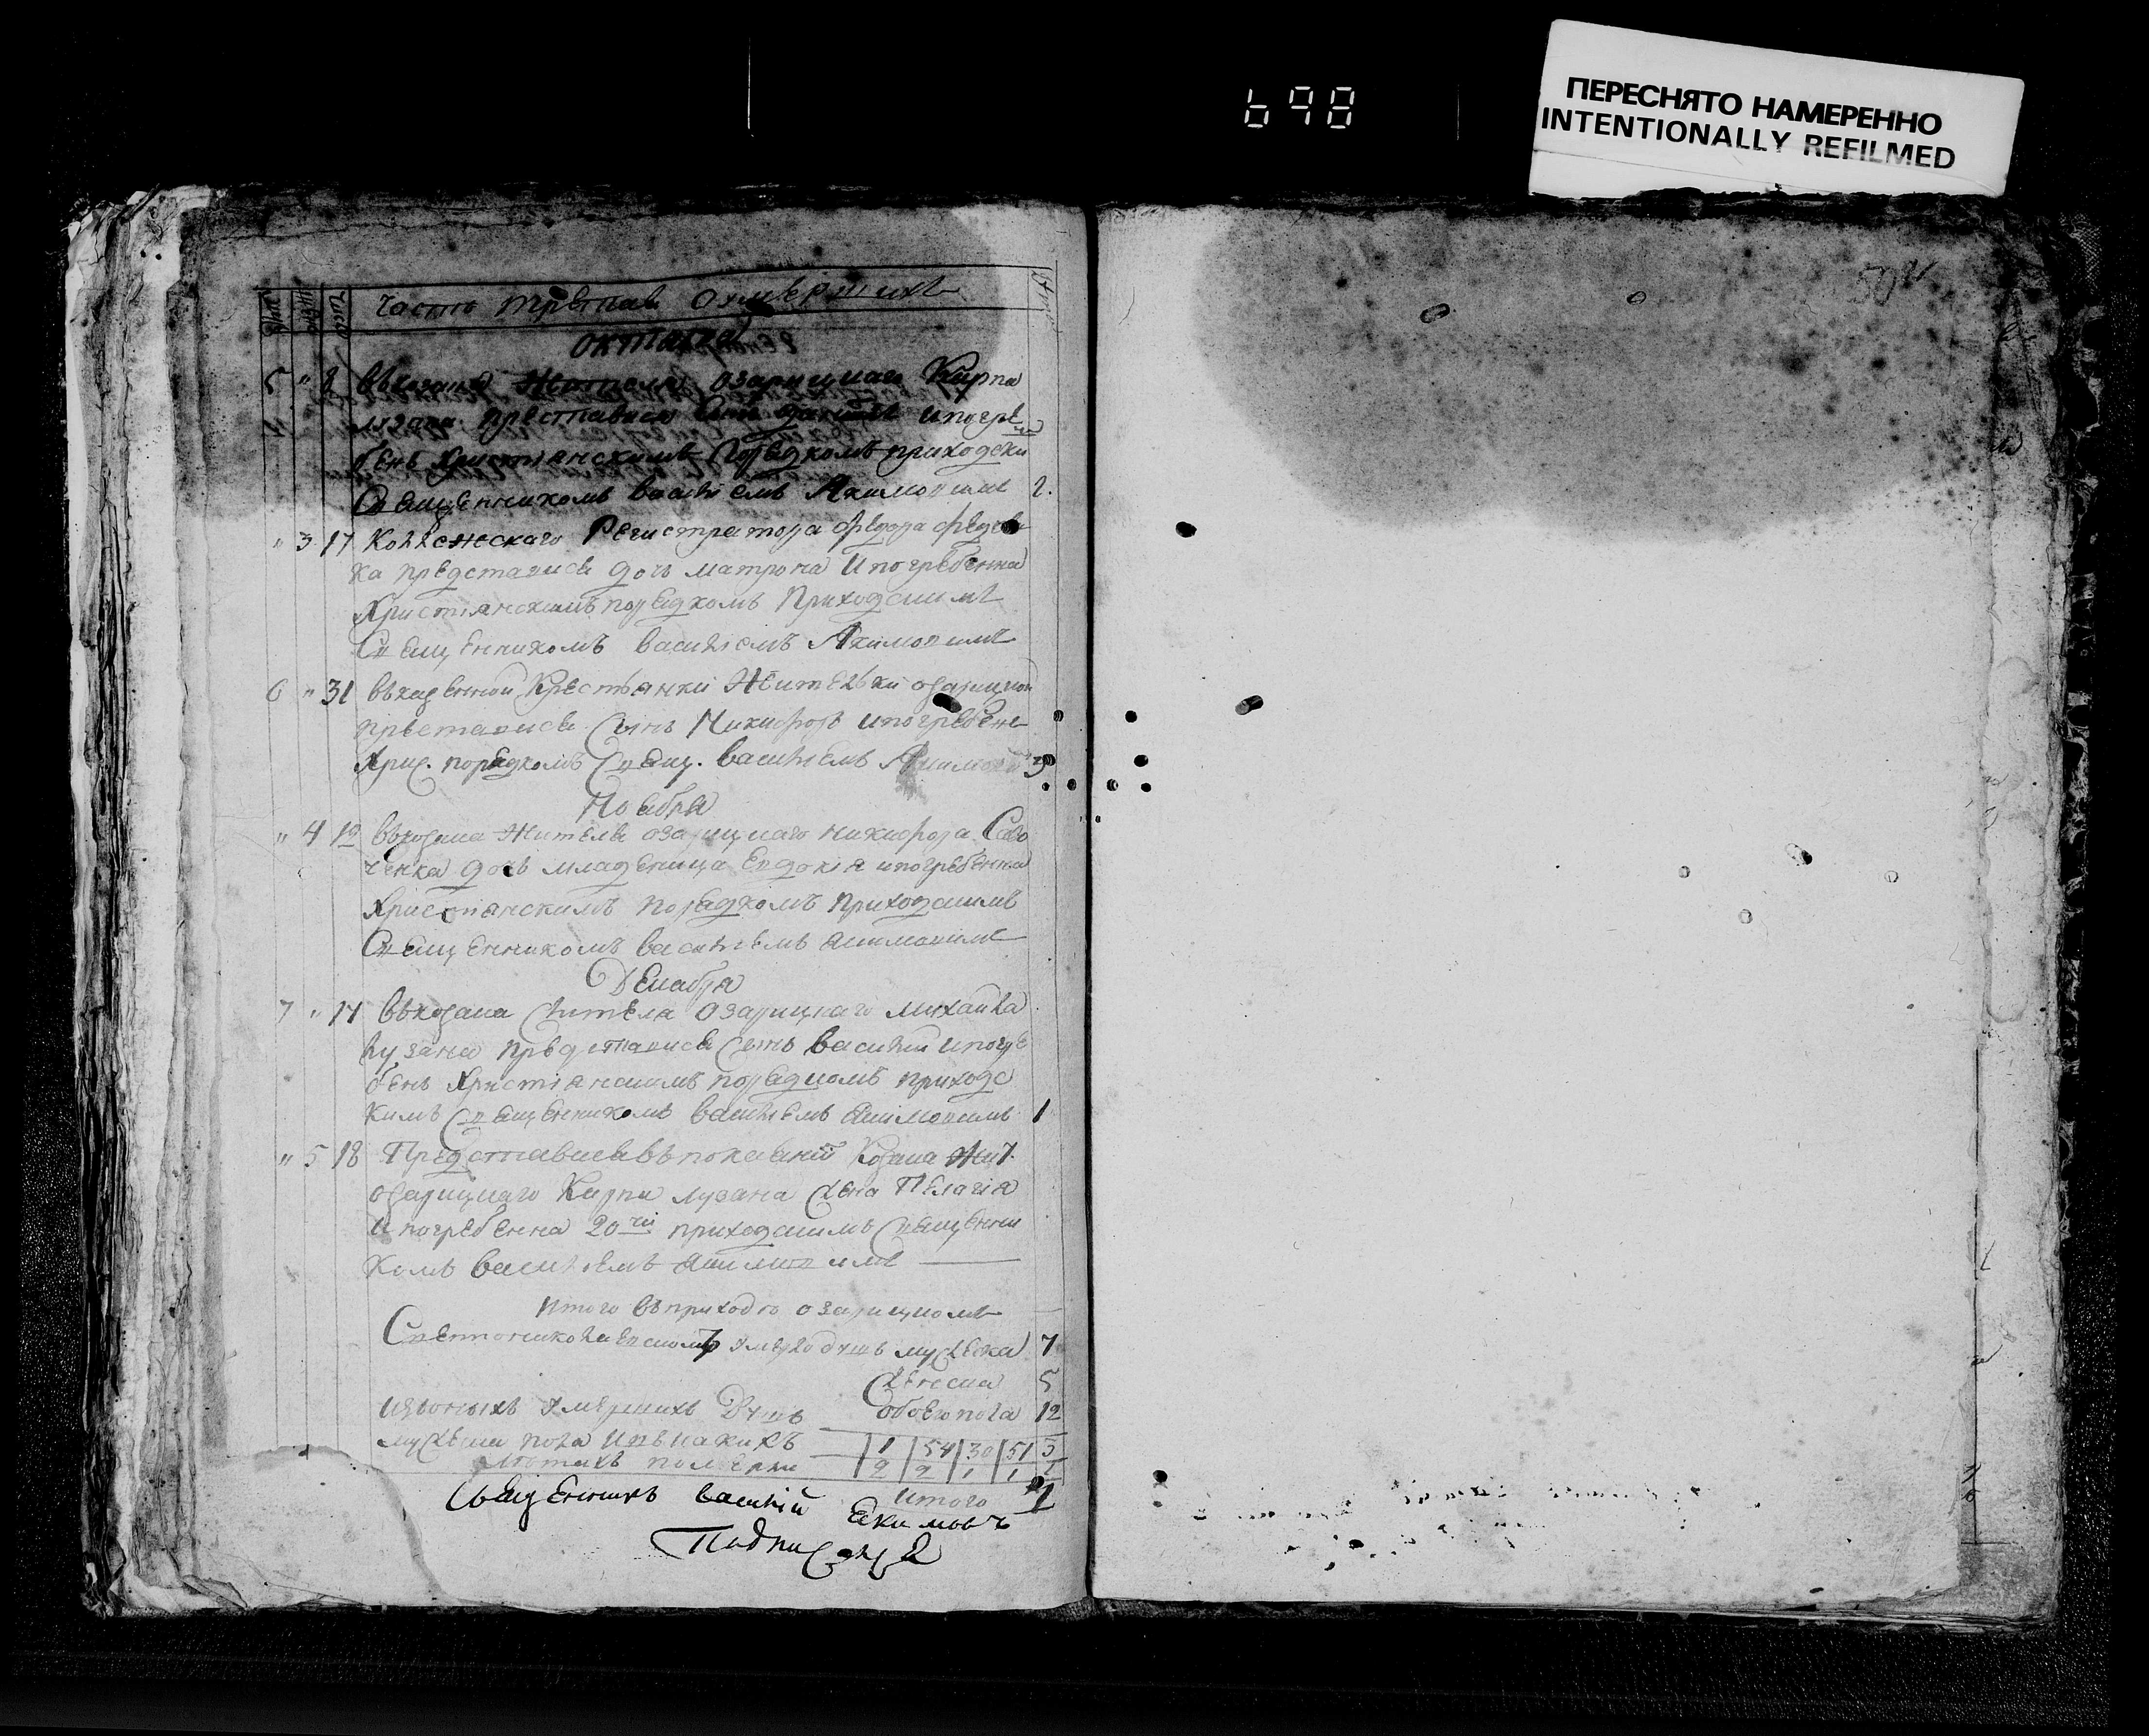 698
ПЕРЕСНЯТО НАМЕРЕННО
INTENTIONALLY REFILMED
Часть третая Оумершихъ
октября
5 " 8 Жителя озарицкаго Карпа
преставися и погре
бенъ христианскимъ порядкомъ приходски
Священникомъ василіемъ Акимовимъ 2.
" 3 17 Коллежскаго Регистратора федора
ка представися дочь матрона и погребенна
Христианскимъ порядкомъ Приходскимъ
Священникомъ василіемъ Акимовимъ
6 " 31 вказенной Крестьянки Жительки озарицкой
преставися Сынъ Никифоръ и погребенъ
Хрис. порядкомъ Свящ. василіемъ Акимов 3
Ноября
" 4 12 вкозака жителя озарицкаго никифора Сав
ченка дочь младеница Евдокія и погребенна
Христианскимъ порядкомъ приходскимъ
Священникомъ василіемъ Якимовимъ
Декабря
7 " 14 вкозака жителя Озарицкаго михайла
лузана представися Сынъ василий и погре
бенъ Христианскимъ порядкомъ приходс
кимъ Священникомъ василіемъ Якимовимъ 1
" 5 18 Представися въ покаянии Козака Жит.
озарицкаго Карпа лузана жена Пелагія
и погребенна 20 чи приходскимъ Священни
комъ василіемъ Якимовимъ
Итого въ приходѣ озарицкомъ
Светониколаевскомъ умерло душъ мужеска 7
женска 5
обоего пола 12
изъ оныхъ умершихъ Душъ
мужеска пола и въ какихъ 1 54 30 51 3
летахъ померли 2 2 1 1
итого
Священникъ василій Екимовъ
Подписался